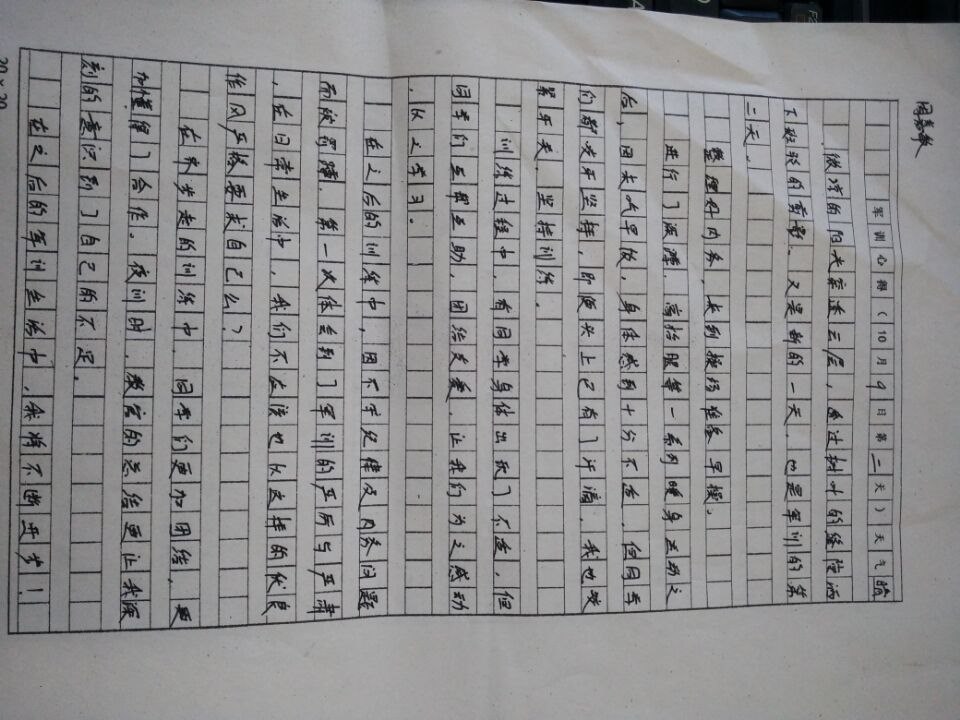 军训心得(10月9日第二天)天气
微凉的阳光穿透云层,透过树叶的缝隙洒
下斑驳的剪影。又是新的一天,也是军训的第
二天。
整理好内务,去到操场准备早操。
进行了深蹲、高抬腿等一系列暖身运动之
后,因未吃早饭,身体感到十分不适,但同学
们都咬牙坚持,即便头上已有了汗滴。我也咬
紧牙关,坚持训练。
训练过程中,有同学身体出现了不适,但
同学们的互帮互助,团结友爱,让我们为之感动
,从之学习。
在之后的训练中,因不守纪律及内务问题
而被罚蹲,第一次体会到了军训的严厉与严肃
,在日常生活中,我们不应该也以这样的优良
作风严格要求自己么?
在齐步走的训练中,同学们更加团结,更
加懂得了合作。夜训时,教官的总结更让我深
刻的意识到了自己的不足。
在之后的军训生活中,我将不断进步!
20×20